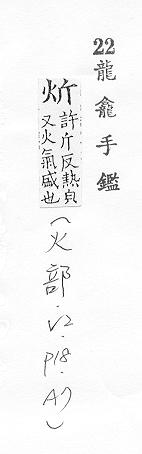 22龍龕手鑑
炘
許斤反熱皃
又火氣盛也
(火部.V2.P18.A7)